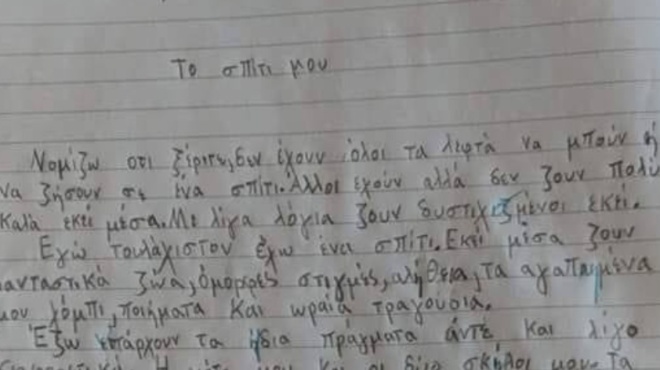 Το σπίτι μου
Νομίζω οτι ξέρετε, δεν έχουν όλοι τα λεφτά να μπούν ή
να ζήσουν σε ένα σπίτι. Άλλοι έχούν αλλά δεν ζουν πολύ
καλά εκεί μέσα. Με λίγα λόγια ζουν δυστιχιζμένοι εκεί.
Εγώ τουλάχιστον έχω ένα σπίτι. Εκεί μέσα ζουν
φανταστικά ζώα, όμορφες στιγμές, αλήθεια, τα αγαπημένα
μου χόμπι, ποιήματα και ωραία τραγούδια.
Έξω υπάρχουν τα ίδια πράγματα άντε και λίγο
μου και οι δύο σκύλοι μου. Τα